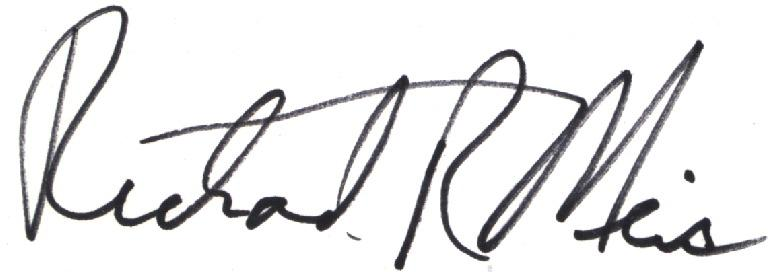 Richard R Meis